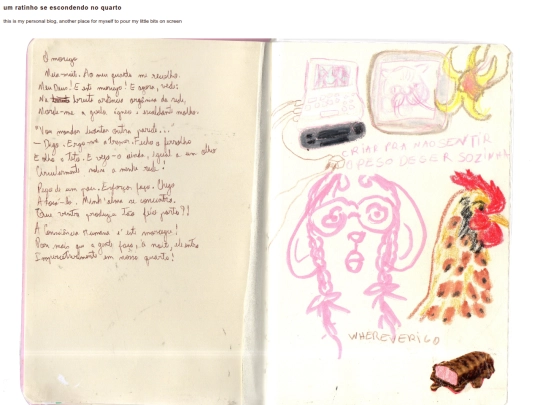 um ratinho se escondendo no quarto
this is my personal blog, another place for myself to pour my little bits on screen
O morcego
Meia-noite. Ao meu quarto me recolho.
Meu Deus! E este morcego! E agora, vede:
Na bruta ardência orgânica da sede,
Morde-me a goela ígneo e escaldante molho.
"Vou mandar levantar outra parede..."
— Digo. Ergo-me a tremer. Fecho o ferrolho
E olho o teto. E vejo-o ainda, igual a um olho,
Circularmente sobre a minha rede!
Pego de um pau. Esforços faço. Chego
A tocá-lo. Minh'alma se concentra.
Que ventre produziu tão feio parto?!
A Consciência Humana é este morcego!
Por mais que a gente faça, à noite, ele entra
Imperceptivelmente em nosso quarto!
CRIAR PRA NÃO SENTIR
O PESO DE SER SOZINHA
WHEREVERIGO